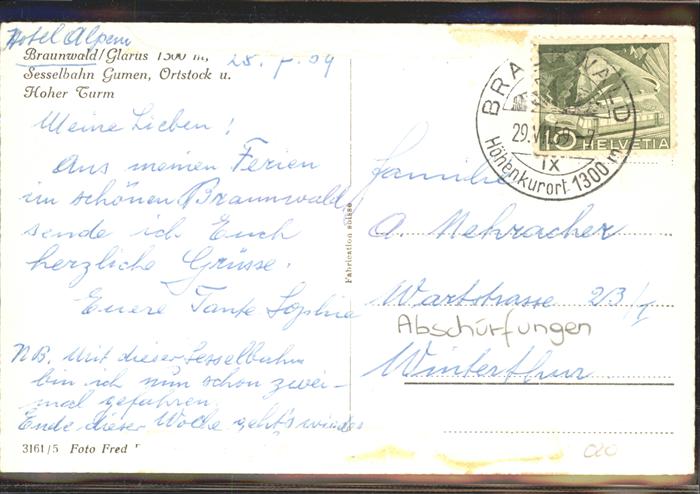 Hotel Alpen
Braunwald/Glarus 1300 m,
Sesselbahn Gumen, Ortstock u.
Hoher Turm
28. 7. 59
Meine Lieben!
Aus meinen Ferien
im schönen Braunwald
sende ich Euch
herzliche Grüsse.
Euere Tante Sophie
NB. Mit dieser Sesselbahn
bin ich nun schon zwei-
mal gefahren.
Ende dieser Woche geht's wieder
3161/5 Foto Fred
Fabrication suisse
BRAUNWALD
29.VII.59
IX
Höhenkurort 1300 m
5 HELVETIA
Familie
A. Mehracher
Wartstrasse 23/I
Abschürfungen
Winterthur